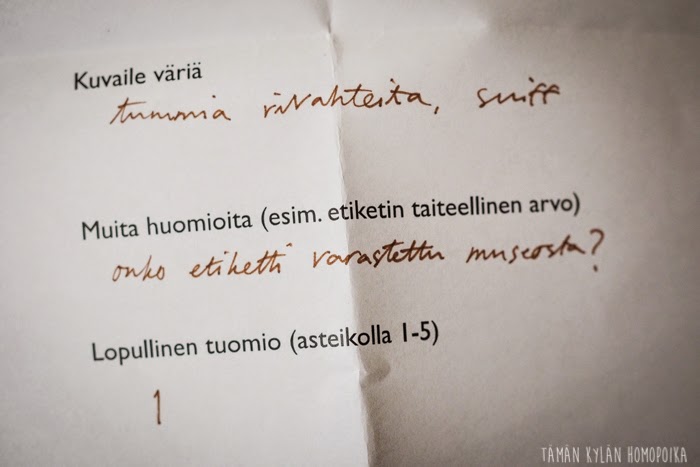 Kuvaile väriä
tummia vivahteita, sniff
Muita huomioita (esim. etiketin taiteellinen arvo)
onko etiketti varastettu museosta?
Lopullinen tuomio (asteikolla 1-5)
1
TÄMÄN KYLÄN HOMOPOIKA